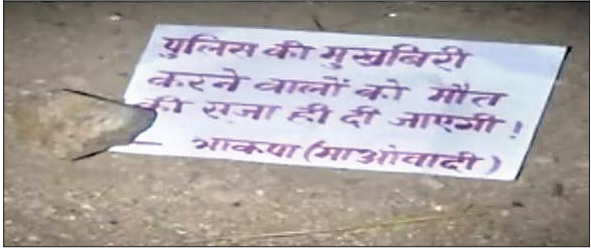 पुलिस की मुखबिरी
करने वालों को मौत
की सजा ही दी जाएगी!
— भाकपा (माओवादी)